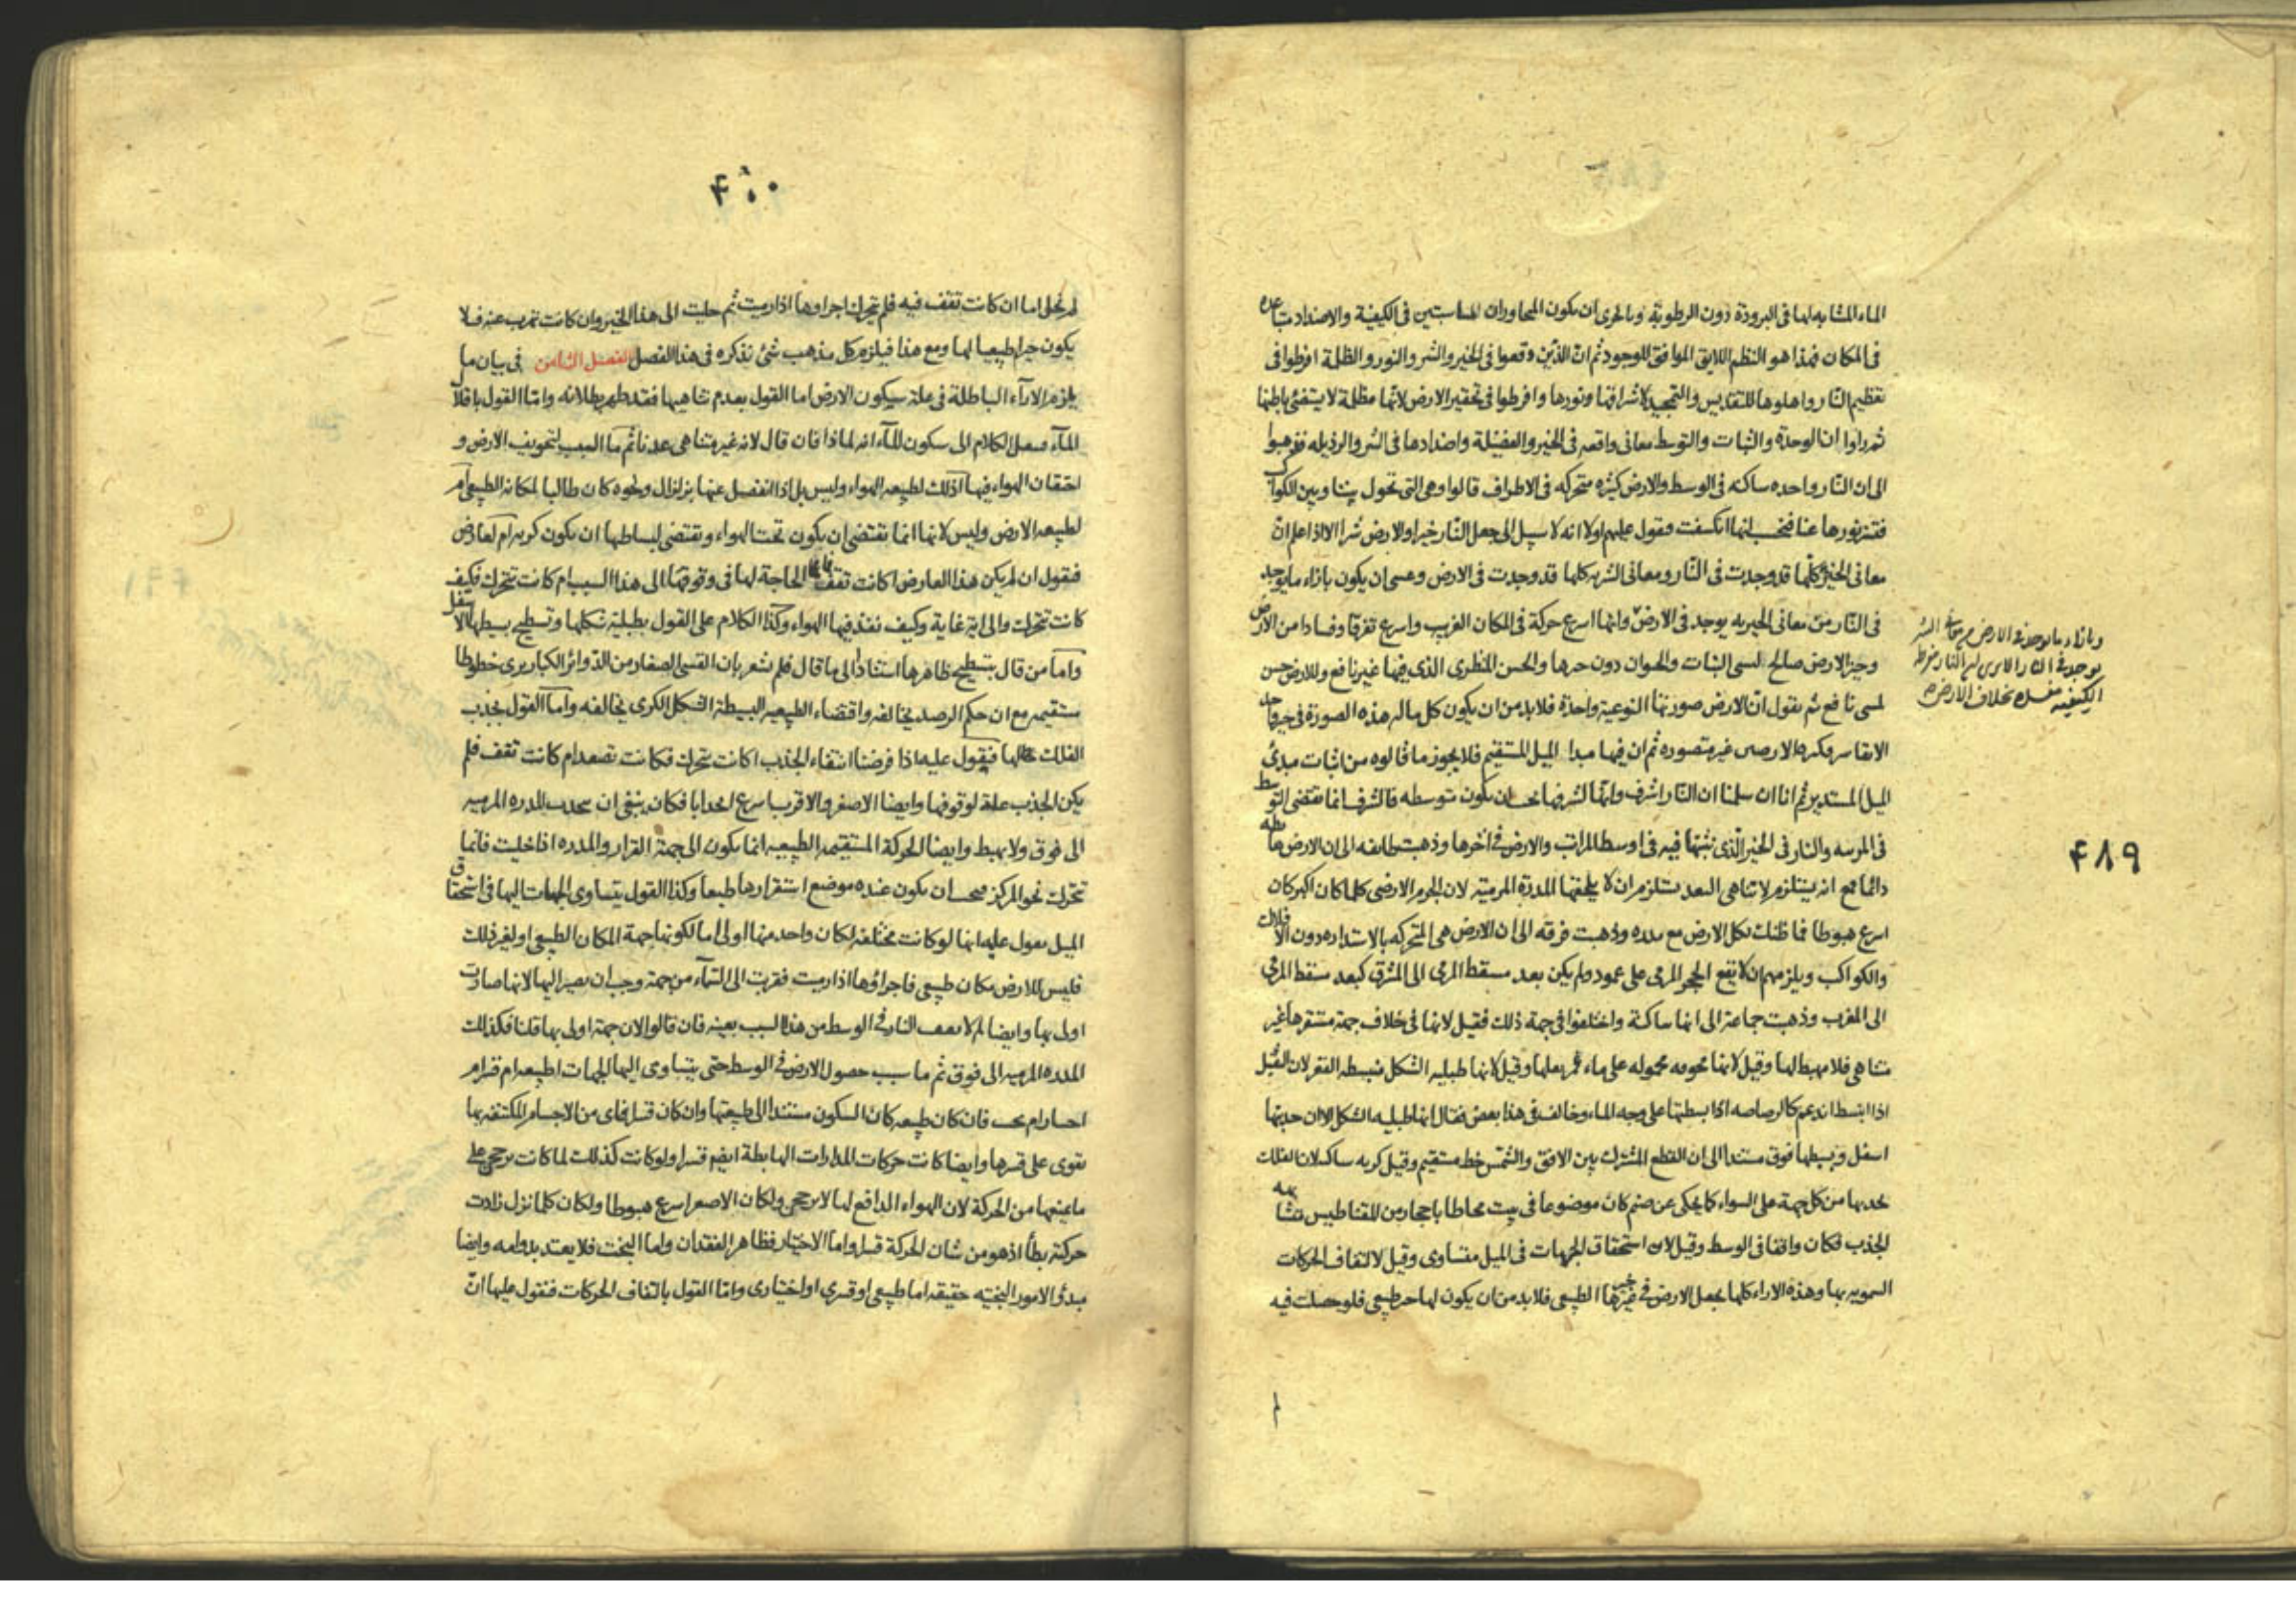 الماء المشابه لها فى البرودة دون الرطوبة وبالحرى ان يكون المجاوران المتناسبتين فى الكيفية والاضداد متباعده
فى المكان فهذا هو النظم اللايق الموافق للوجود ثم ان الذين وقعوا فى الخير والشر والنور والظلمة افرطوا فى
تعظيم النار واهلوها للتقديس والتمجيد لاشراقها ونورها وافرطوا فى تحقير الارض لانها مظلمة لا يستضئ باطنها
ثم راوا ان الوحدة والثبات والتوسط معانى واقعه فى الخير والفضيلة واضدادها فى الشر والرذيله فذهبوا
الى ان النار واحده ساكنه فى الوسط والارض كثيره متحركه فى الاطراف قالوا وهى التى تحول بيننا وبين الكواكب
فتستر نورها عنا فنحسب انها انكسفت فنقول عليهم اولا انه لا سبيل الى جعل النار خيرا والارض شرا الا اذا علم ان
معانى الخير كلها قد وجدت فى النار ومعانى الشر كلها قد وجدت فى الارض وعسى ان يكون بازاء ما يوجد
فى النار من معانى الخيريه يوجد فى الارض وانها اسرع حركة فى المكان الغريب واسرع تفرقا وفسادا من الارض
وحيز الارض صالح لسى النبات والحيوان دون حرها والحسن المنظرى الذى فيها غير نافع وللارض حسن
لمسى نافع ثم نقول ان الارض صورتها النوعية واحدة فلا بد من ان يكون كل ما له هذه الصورة فى حيز واحد
الا بقاسر وكره الارض غير متصوره ثم ان فيها مبدا الميل المستقيم فلا يجوز ما قالوه من اثبات مبدئ
الميل المستدير ثم انا ان سلمنا ان النار اشرف وانها لشرفها يجب ان يكون متوسطه فالشرف انما يقتضى التوسط
فى المرتبه والنار فى الحيز الذى نثبتها فيه فى اوسط المراتب والارض فى اخرها وذهبت طائفه الى ان الارض هابطه
دائما مع انه يستلزم لا تناهى البعد يستلزم ان لا يلحقها المدرة المرمية لان الجرم الارضى كلما كان اكبر كان
اسرع هبوطا فما ظنك بكل الارض مع مدره وذهبت فرقه الى ان الارض هى المتحركه بالاستداره دون الافلاك
والكواكب ويلزمهم ان لا يقع الحجر المرمى على عمود ولم يكن بعد مسقط المرمى الى المشرق كبعد مسقط المرمى
الى المغرب وذهبت جماعة الى انها ساكنة واختلفوا فى جهة ذلك فقيل لانها فى خلاف جهة مستقرها غير
متناهى فلا مهبط لها وقيل لانها مجوفه محموله على ماء غمر يقلها وقيل لانها طبليه الشكل منبسطه القعر لان الثقيل
اذا انبسط اندعم كالرصاصه اذا بسطتها على وجه الماء وخالف فى هذا بعض فقال انها طبليه الشكل الا ان حدبتها
اسفل وبسيطها فوق مستندا الى ان القطع المشترك بين الافق والشمس خط مستقيم وقيل كريه ساكنه لان الفلك
يجذبها من كل جهة على السواء كما يحكى عن صنم كان موضوعا فى بيت محاطا باحجار من المقناطيس متشابهه
الجذب فكان واقفا فى الوسط وقيل لان استحقاق الجهات فى الميل متساوى وقيل لالتفاف الحركات
السمويه بها وهذه الاراء كلها يجعل الارض فى غير حيزها الطبيعى فلا بد من ان يكون لها حيز طبيعى فلو حصلت فيه
وبازاء ما يوجد فى الارض من معانى الشر
يوجد فى النار الا ترى ان النار مفرطه
الكيفيه مفسده بخلاف الارض
۴۸۹
۴۹۰
لم يخل اما ان كانت تقف فيه فلم يتحرك اجزاوها اذا رميت ثم خليت الى هذا الحيز وان كانت تهرب عنه فلا
يكون حيزا طبيعيا لها ومع هذا فيلزم كل مذهب شئ نذكره فى هذا الفصل الفصل الثامن فى بيان ما
يلزم الاراء الباطلة فى علة سكون الارض اما القول بعدم تناهيها فقد ظهر بطلانه واما القول باقلال
الماء فننقل الكلام الى سكون الماء انه لماذا فان قال لانه غير متناهى عدنا ثم ما السبب لتجويف الارض و
احتقان الهواء فيها اذلك لطبيعه الهواء وليس بل اذا انفصل عنها بزلزال ونحوه كان طالبا لمكانه الطبيعى ام
لطبيعه الارض وليس لانها انما تقتضى ان يكون تحت الهواء وتقتضى لبساطها ان يكون كريه ام لعارض
فنقول ان لم يكن هذا العارض اكانت تقف فما الحاجة لها فى وقوفها الى هذا السبب ام كانت تتحرك فكيف
كانت تتحرك والى اية غاية وكيف نفذ فيها الهواء وكذا الكلام على القول بطبلية شكلها وتسطيح بسيطها الاسفل
واما من قال بتسطيح ظاهرها استنادا الى ما قال فلم يشعر بان القسى الصغار من الدوائر الكبار يرى خطوطا
مستقيمه مع ان حكم الرصد يخالفه واقتضاء الطبيعه البسيطة الشكل الكرى يخالفه واما القول بجذب
الفلك لها فنقول عليه اذا فرضنا انتفاء الجذب اكانت تتحرك فكانت تصعد ام كانت تقف فلم
يكن الجذب علة لوقوفها وايضا الاصغر والاقرب اسرع انجذابا فكان ينبغى ان ينجذب المدره المرميه
الى فوق ولا يهبط وايضا الحركة المستقيمه الطبيعيه انما يكون الى جهة القرار والمدره اذا خليت فانما
تتحرك نحو المركز فيجب ان يكون عنده موضع استقرارها طبعا وكذا القول بتساوى الجهات اليها فى استحقاق
الميل نقول عليه انها لو كانت مختلفه لكان واحد منها اولى اما لكونها جهة المكان الطبيعى او لغير ذلك
فليس للارض مكان طبيعى فاجزاؤها اذا رميت فقربت الى السماء من جهة وجب ان يصير اليها لانها صارت
اولى بها وايضا لم لا يقف النار فى الوسط من هذا السبب بعينه فان قالوا لان جهة اولى بها قلنا فكذلك
المدره المرميه الى فوق ثم ما سبب حصول الارض فى الوسط حتى يتساوى اليها الجهات اطبيعه ام قسر ام
اختيار ام بخت فان كان طبيعه كان السكون مستندا الى طبيعتها وان كان قسرا فاى من الاجسام المكتنفه بها
تقوى على قسرها وايضا كانت حركات المدرات الهابطة ايضا قسرا ولو كانت كذلك لما كانت يرجحن على
ما يمنعها من الحركة لان الهواء الدافع لها لا يرجحن ولكان الاصغر اسرع هبوطا ولكان كلما نزل زادت
حركته بطأ اذ هو من شان الحركة قسرا واما الاختيار فظاهر الفقدان واما البخت فلا يعتد بدوامه وايضا
مبدئ الامور البختيه حقيقه اما طبيعى او قسرى او اختيارى واما القول بالتفاف الحركات فنقول عليها ان